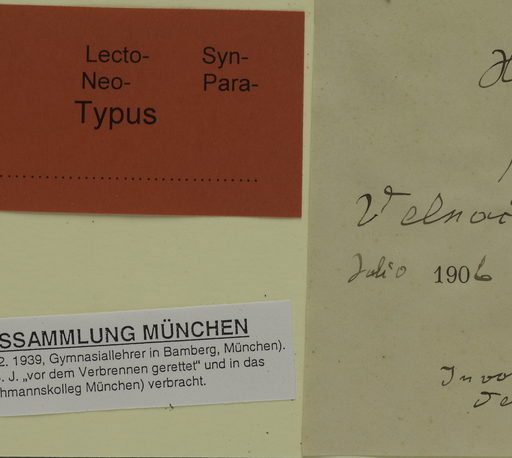 Lecto- Syn-
Neo- Para-
Typus
SSAMMLUNG MÜNCHEN
2. 1939, Gymnasiallehrer in Bamberg, München).
. J. „vor dem Verbrennen gerettet" und in das
hmannskolleg München) verbracht.
Julio 1906